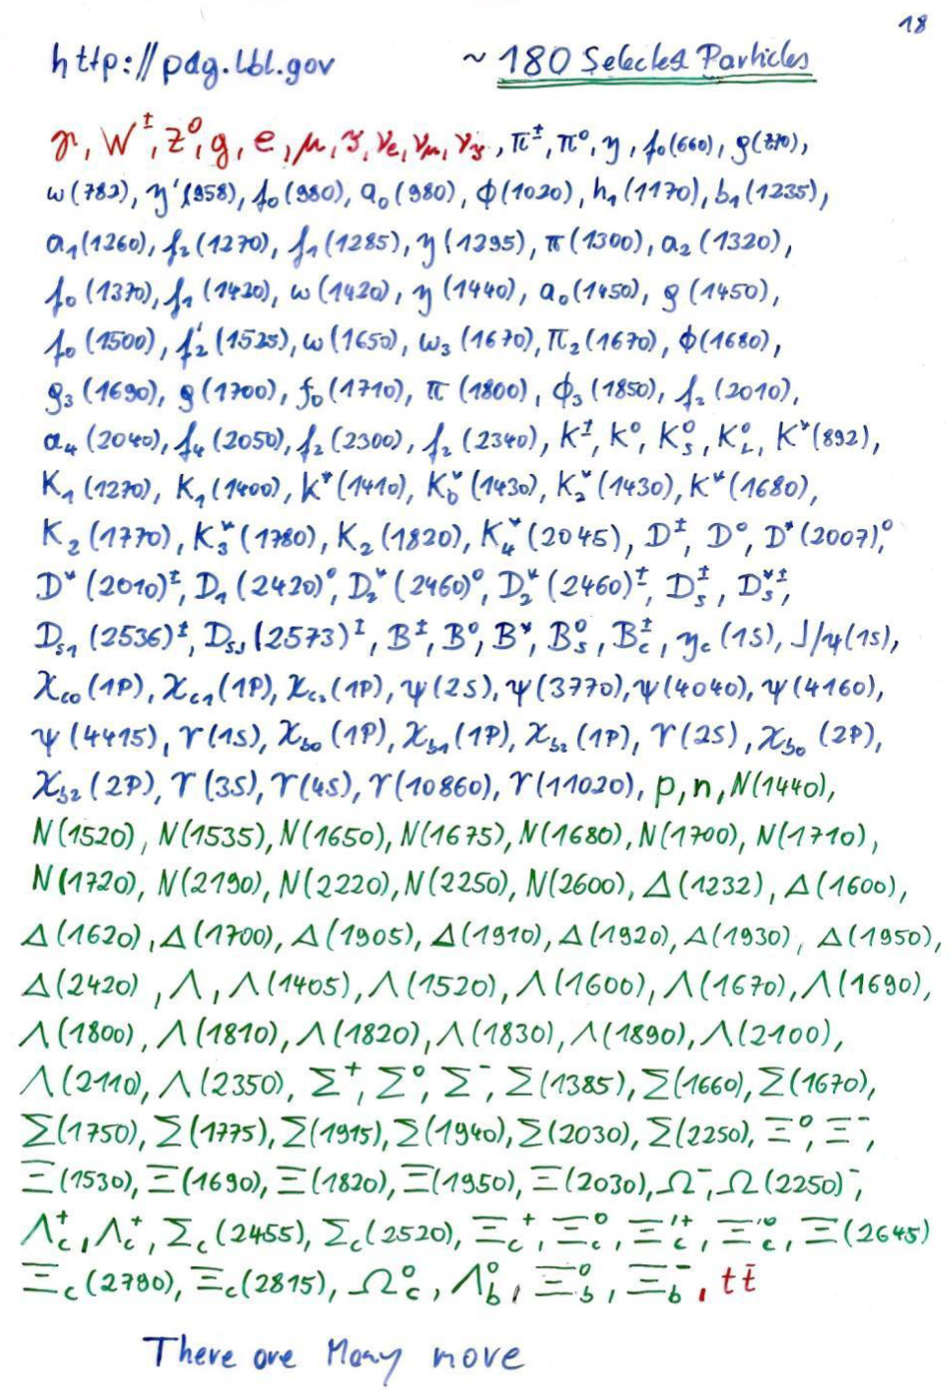 18
http://pdg.lbl.gov ~ 180 Selected Particles
γ, W±, Z⁰, g, e, μ, τ, νe, νμ, ντ, π±, π⁰, η, f₀(660), ρ(770),
ω(782), η'(958), f₀(980), a₀(980), ϕ(1020), h₁(1170), b₁(1235),
a₁(1260), f₂(1270), f₁(1285), η(1295), π(1300), a₂(1320),
f₀(1370), f₁(1420), ω(1420), η(1440), a₀(1450), ρ(1450),
f₀(1500), f₂'(1525), ω(1650), ω₃(1670), π₂(1670), ϕ(1680),
ρ₃(1690), ρ(1700), f₀(1710), π(1800), ϕ₃(1850), f₂(2010),
a₄(2040), f₄(2050), f₂(2300), f₂(2340), K±, K⁰, K⁰s, K⁰L, K*(892),
K₁(1270), K₁(1400), K*(1410), K₀*(1430), K₂*(1430), K*(1680),
K₂(1770), K₃*(1780), K₂(1820), K₄*(2045), D±, D⁰, D*(2007)⁰,
D*(2010)±, D₁(2420)⁰, D₂*(2460)⁰, D₂*(2460)±, Ds±, Ds*±,
Ds1(2536)±, DsJ(2573)±, B±, B⁰, B*, Bs⁰, Bc±, ηc(1S), J/ψ(1S),
χc0(1P), χc1(1P), χc2(1P), ψ(2S), ψ(3770), ψ(4040), ψ(4160),
ψ(4415), Υ(1S), χb0(1P), χb1(1P), χb2(1P), Υ(2S), χb0(2P),
χb2(2P), Υ(3S), Υ(4S), Υ(10860), Υ(11020), p, n, N(1440),
N(1520), N(1535), N(1650), N(1675), N(1680), N(1700), N(1710),
N(1720), N(2190), N(2220), N(2250), N(2600), Δ(1232), Δ(1600),
Δ(1620), Δ(1700), Δ(1905), Δ(1910), Δ(1920), Δ(1930), Δ(1950),
Δ(2420), Λ, Λ(1405), Λ(1520), Λ(1600), Λ(1670), Λ(1690),
Λ(1800), Λ(1810), Λ(1820), Λ(1830), Λ(1890), Λ(2100),
Λ(2110), Λ(2350), Σ⁺, Σ⁰, Σ⁻, Σ(1385), Σ(1660), Σ(1670),
Σ(1750), Σ(1775), Σ(1915), Σ(1940), Σ(2030), Σ(2250), Ξ⁰, Ξ⁻,
Ξ(1530), Ξ(1690), Ξ(1820), Ξ(1950), Ξ(2030), Ω⁻, Ω(2250)⁻,
Λc⁺, Λc⁺, Σc(2455), Σc(2520), Ξc⁺, Ξc⁰, Ξc'⁺, Ξc'⁰, Ξ(2645)
Ξc(2780), Ξc(2815), Ωc⁰, Λb⁰, Ξb⁰, Ξb⁻, tt̄
There are Many more